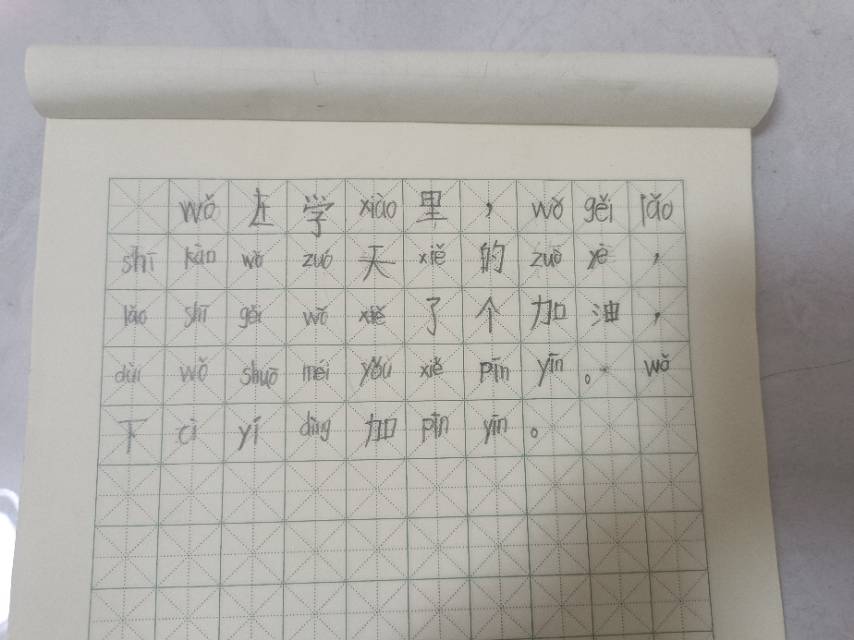 wǒ 在 学 xiào 里 ， wǒ gěi lǎo
shī kàn wǒ zuó 天 xiě 的 zuò yè ，
lǎo shī gěi wǒ xiě 了 个 加 油 ，
duì wǒ shuō méi yǒu xiě pīn yīn 。 wǒ
下 cì yí dìng 加 pīn yīn 。